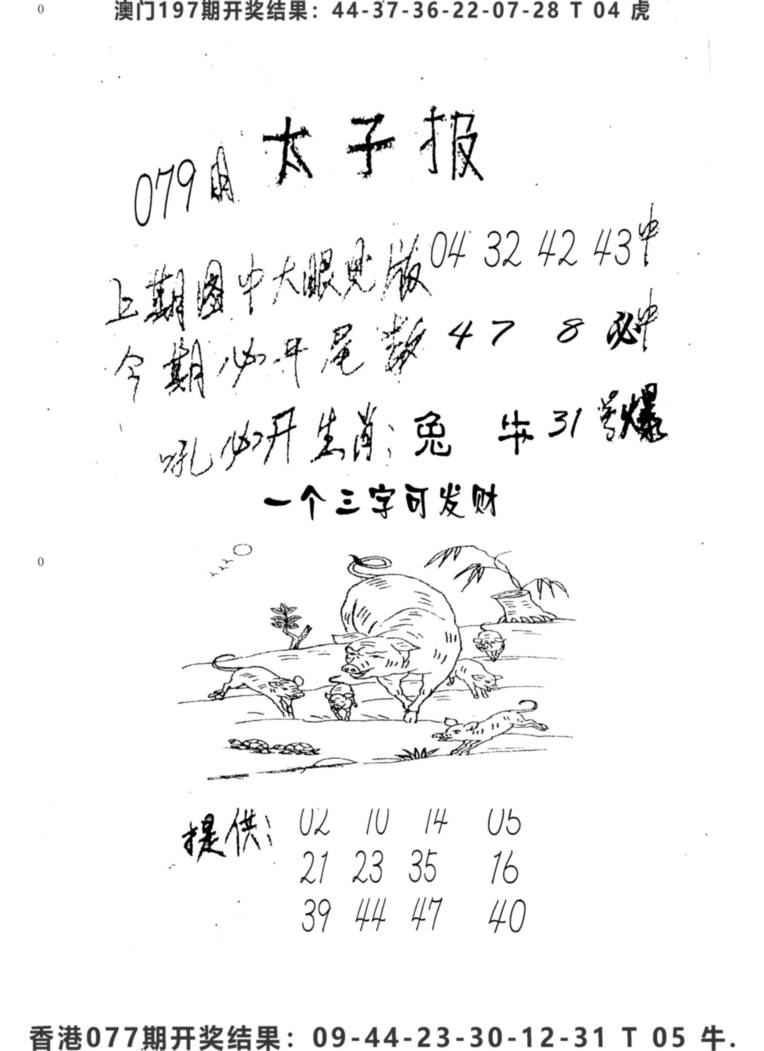 0
澳门197期开奖结果：44-37-36-22-07-28 T 04 虎
太子报
079期
上期图中大眼见版04 32 42 43中
今期必开尾数 4 7 8 必中
吼必开生肖：兔 牛 31号爆
一个三字可发财
0
提供：02 10 14 05
21 23 35 16
39 44 47 40
香港077期开奖结果：09-44-23-30-12-31 T 05 牛.